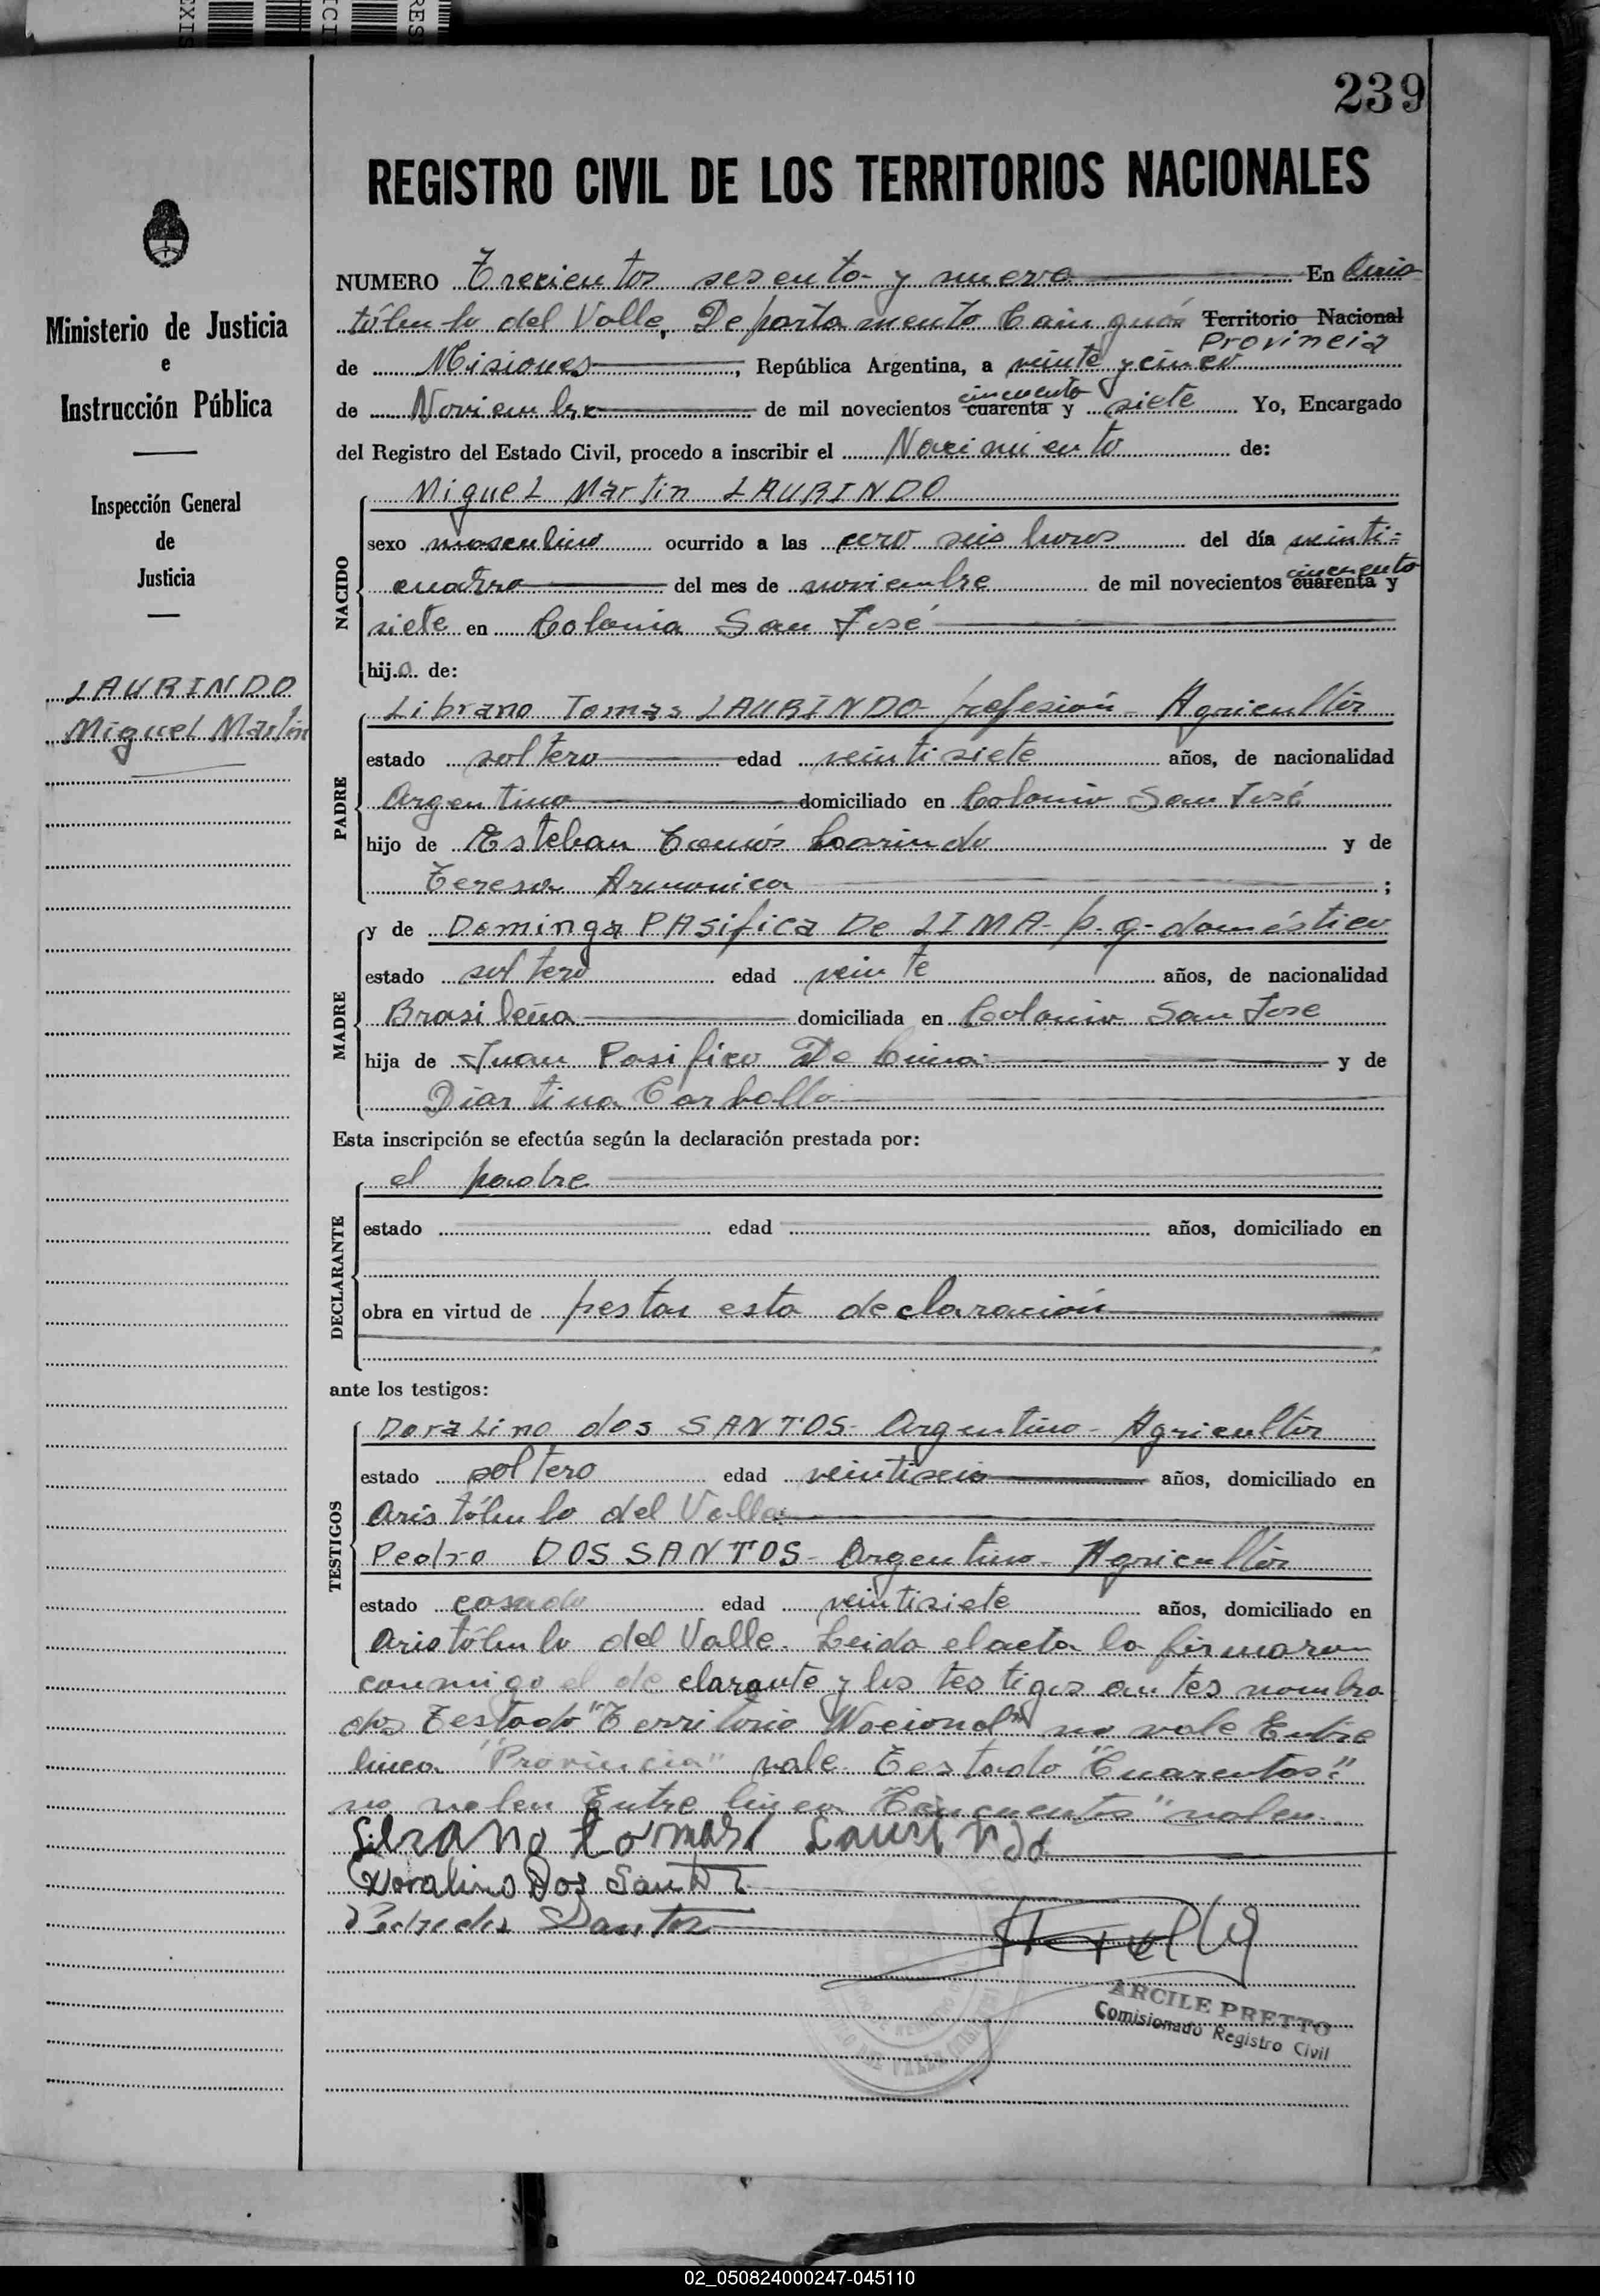 239
REGISTRO CIVIL DE LOS TERRITORIOS NACIONALES
Ministerio de Justicia
e
Instrucción Pública
Inspección General
de
Justicia
LAURINDO
Miguel Martin
NUMERO Trecientos sesenta y nueve En Aris
tóbulo del Valle, Departamento Cainguás Territorio Nacional
Provincia
de Misiones, República Argentina, a veinte y cinco
cincuenta
de Noviembre de mil novecientos cuarenta y siete Yo, Encargado
del Registro del Estado Civil, procedo a inscribir el Nacimiento de:
NACIDO
Miguel Martin LAURINDO
sexo masculino ocurrido a las cero seis horas del día veinti=
cincuenta
cuatro del mes de noviembre de mil novecientos cuarenta y
siete en Colonia San José
hijo de:
PADRE
Librano Tomas LAURINDO profesión - Agricultor
estado soltero edad veintisiete años, de nacionalidad
Argentino domiciliado en Colonia San José
hijo de Esteban Tomás Laurindo y de
Teresa Armonica ;
MADRE
y de Dominga PASifica De LIMA - p. q - doméstico
estado soltero edad veinte años, de nacionalidad
Brasileña domiciliada en Colonia San Jose
hija de Juan Pasifico De Lima y de
Diartina Carballo
Esta inscripción se efectúa según la declaración prestada por:
DECLARANTE
el padre
estado edad años, domiciliado en
obra en virtud de pestar esta declaración
ante los testigos:
TESTIGOS
Doralino dos SANTOS - Argentino - Agricultor
estado soltero edad veintiseis años, domiciliado en
Aristóbulo del Valle
Pedro DOS SANTOS - Argentino - Agricultor
estado casado edad veintisiete años, domiciliado en
Aristóbulo del Valle. Leida el acta la firmaron
conmigo el declarante y los testigos antes nombra
dos Testado "Territorio Nacional" no vale Entre
linea "Provincia" vale. Testado "Cuarentas"
no valen Entre linea "Cincuentas" valen.
Librano tomas Laurindo
Doralino Dos Santos
Pedro dos Santos
ARCILE PRETTO
Comisionado Registro Civil
02_050824000247-045110